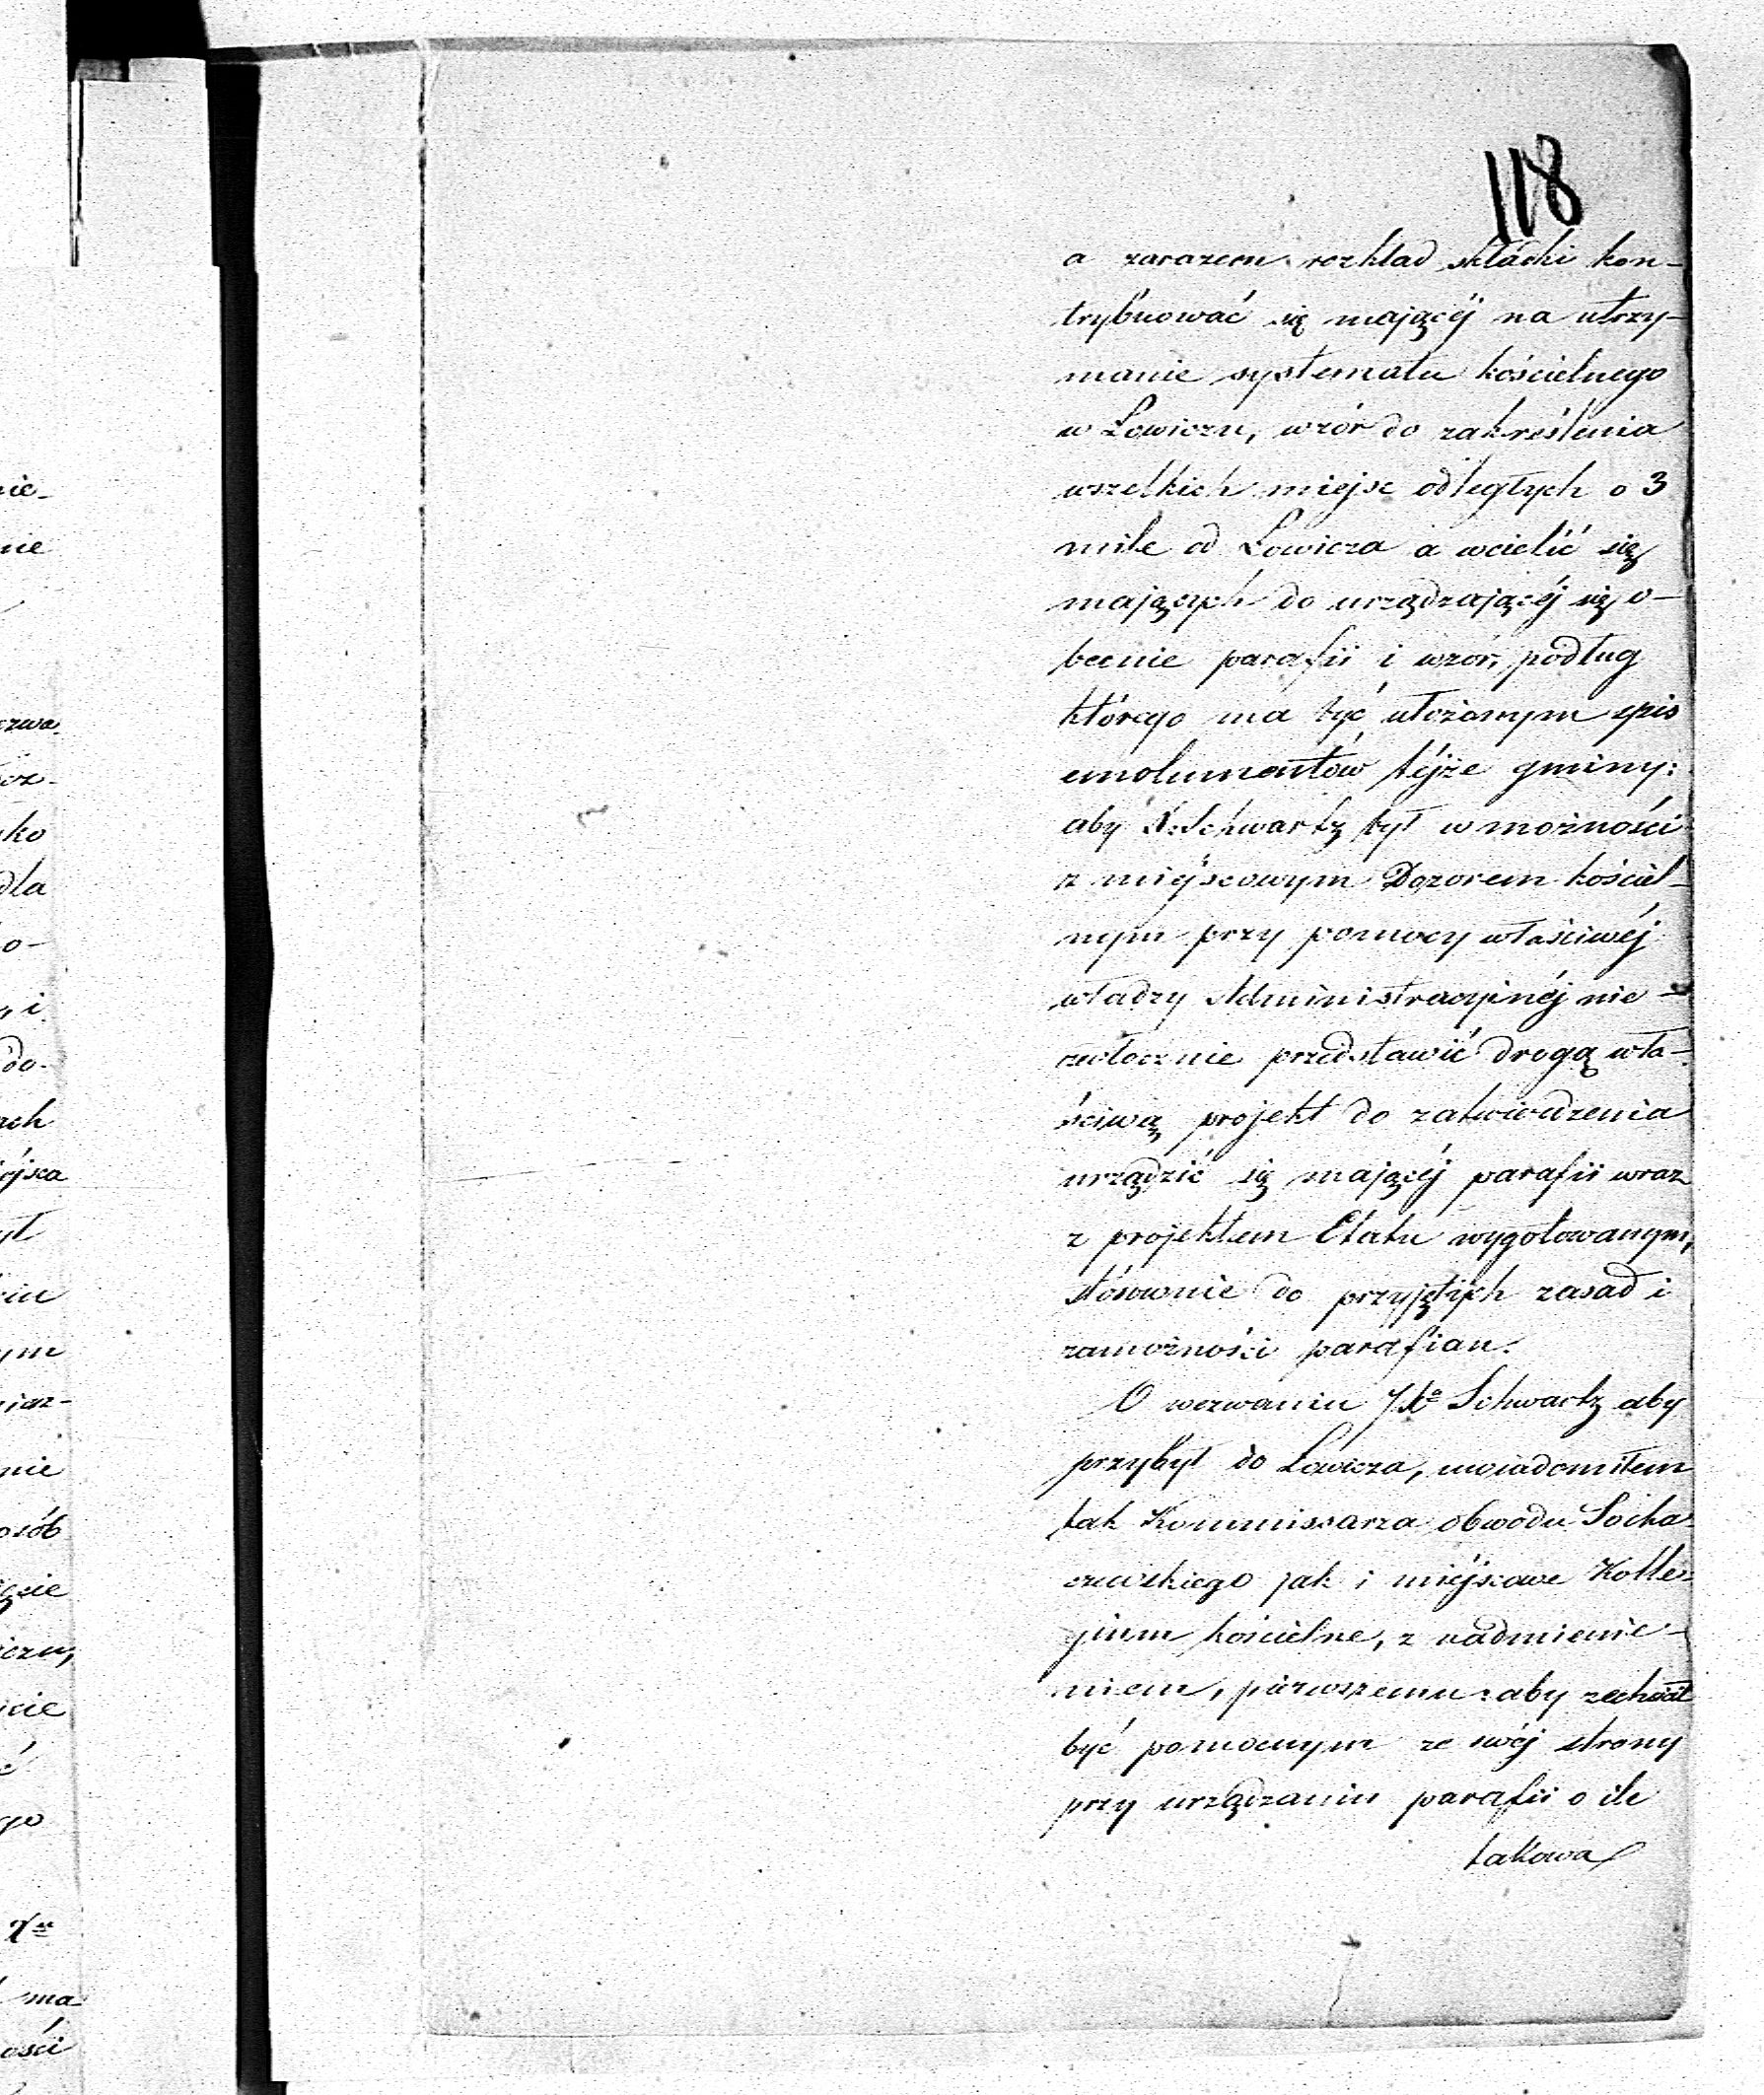 118
a zarazem rozkład składki kon-
trybuować się mającéj na utrzy-
manie systematu kościelnego
w Łowiczu, wzór do zakreślenia
wszelkich miejsc odległych o 3
mile od Łowicza a wcielić się
mających do urządzającéj się o-
becnie parafii i wzór, podług
którego ma być ułożonym spis
emolumentów téjże gminy:
aby X. Schwartz był w możności
z miejscowym Dozorem kościel-
nym przy pomocy właściwéj
władzy Administracyjnéj nie-
zwłocznie przedstawić drogą wła-
ściwą projekt do zatwierdzenia
urządzić się mającéj parafii wraz
z projektem Etatu wygotowanym,
stósownie do przyjętych zasad i
zamożności parafian.
O wezwaniu Schwartz aby
przybył do Łowicza, uwiadomiłem
tak Kommissarza obwodu Socha-
czewskiego jak i miéjscowe Kolle-
gium kościelne, z nadmienie-
niem, pierwszemu: aby zechciał
być pomocnym ze swéj strony
przy urządzaniu parafii o ile
takowa